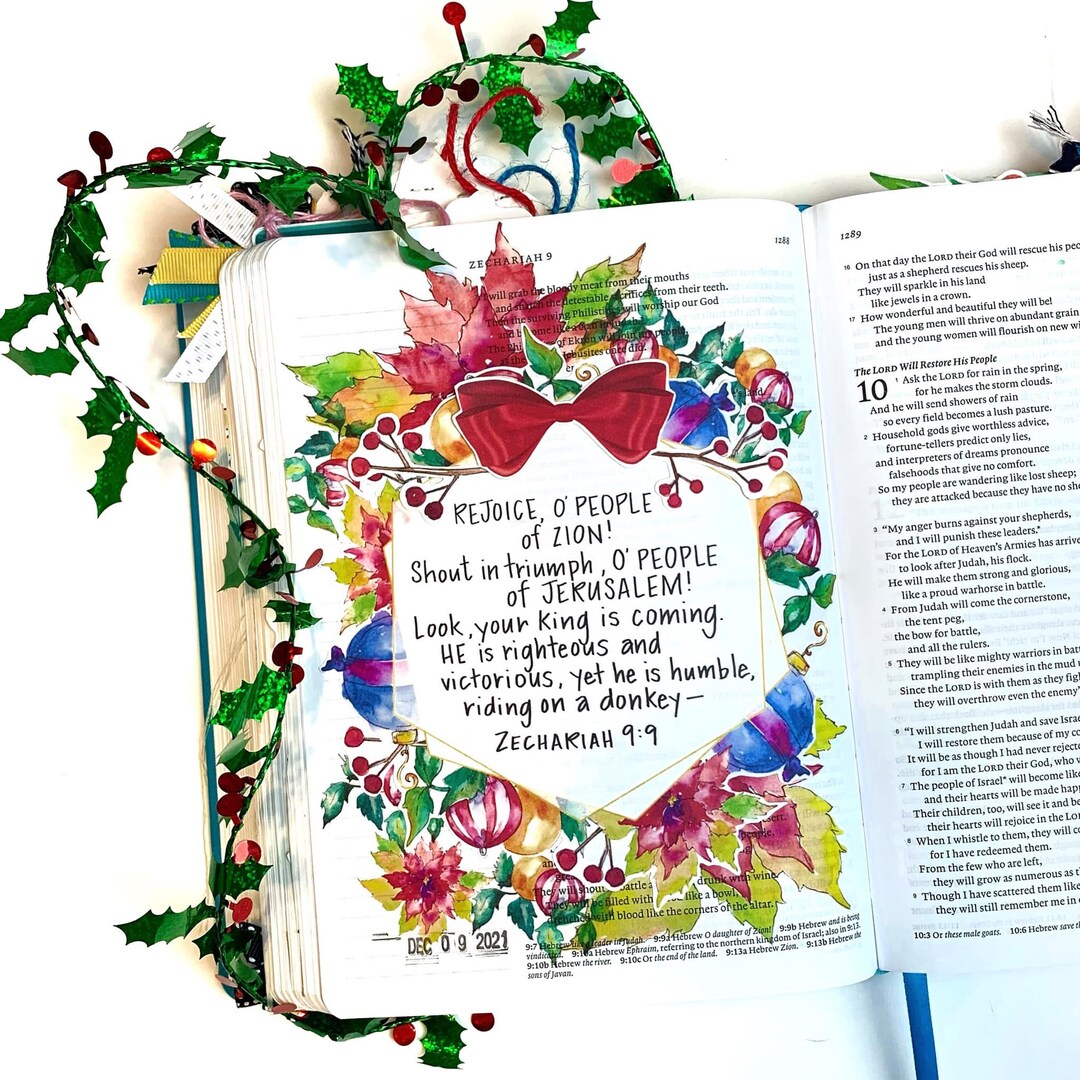 ZECHARIAH 9
1288
will grab the bloody meat from their mouths
and snatch the detestable sacrifices from their teeth.
Then the surviving Philistines will worship our God
and become like a clan in Judah.
The Phi of Ekron will join my people,
as the Jebusites once did.
REJOICE, O' PEOPLE
of ZION!
Shout in triumph, O' PEOPLE
of JERUSALEM!
Look, your King is coming.
HE is righteous and
victorious, yet he is humble,
riding on a donkey—
ZECHARIAH 9:9
desert.
people,
an
grea
They will shout battle a drunk with wine
They will be filled with like a bowl,
drenched with blood like the corners of the altar.
DEC 09 2021
9:7 Hebrew like a leader in Judah. 9:9a Hebrew O daughter of Zion! 9:9b Hebrew and is being
vindicated. 9:10a Hebrew Ephraim, referring to the northern kingdom of Israel; also in 9:13.
9:10b Hebrew the river. 9:10c Or the end of the land. 9:13a Hebrew Zion. 9:13b Hebrew the
sons of Javan.
1289
16 On that day the LORD their God will rescue his peo
just as a shepherd rescues his sheep.
They will sparkle in his land
like jewels in a crown.
17 How wonderful and beautiful they will be!
The young men will thrive on abundant grain
and the young women will flourish on new wi
The LORD Will Restore His People
10 1 Ask the LORD for rain in the spring,
for he makes the storm clouds.
And he will send showers of rain
so every field becomes a lush pasture.
2 Household gods give worthless advice,
fortune-tellers predict only lies,
and interpreters of dreams pronounce
falsehoods that give no comfort.
So my people are wandering like lost sheep;
they are attacked because they have no she
3 “My anger burns against your shepherds,
and I will punish these leaders.*
For the LORD of Heaven's Armies has arrive
to look after Judah, his flock.
He will make them strong and glorious,
like a proud warhorse in battle.
4 From Judah will come the cornerstone,
the tent peg,
the bow for battle,
and all the rulers.
5 They will be like mighty warriors in batt
trampling their enemies in the mud
Since the LORD is with them as they figh
they will overthrow even the enemy'
6 “I will strengthen Judah and save Israe
I will restore them because of my co
It will be as though I had never rejecte
for I am the LORD their God, who
7 The people of Israel* will become lik
and their hearts will be made happ
Their children, too, will see it and be
their hearts will rejoice in the Lo
8 When I whistle to them, they will co
for I have redeemed them.
From the few who are left,
they will grow as numerous as t
9 Though I have scattered them like
they will still remember me in
10:3 Or these male goats. 10:6 Hebrew save th